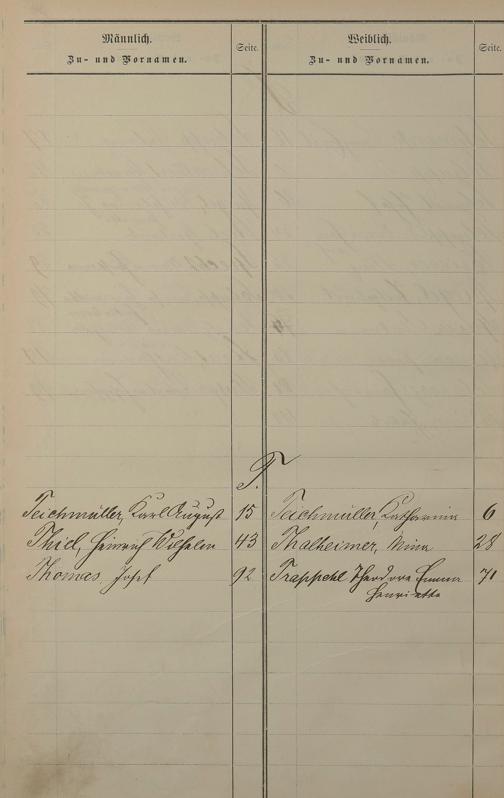 Männlich.
Zu- und Vornamen.
Seite.
Weiblich.
Zu- und Vornamen.
Seite.
T.
Teichmüller, Karl August 15
Teichmüller, Katharina 6
Thiel, Heinrich Wilhelm 43
Thalheimer, Minna 28
Thomas, Josef 92
Trappehl Theodora Emma 71
Henriette